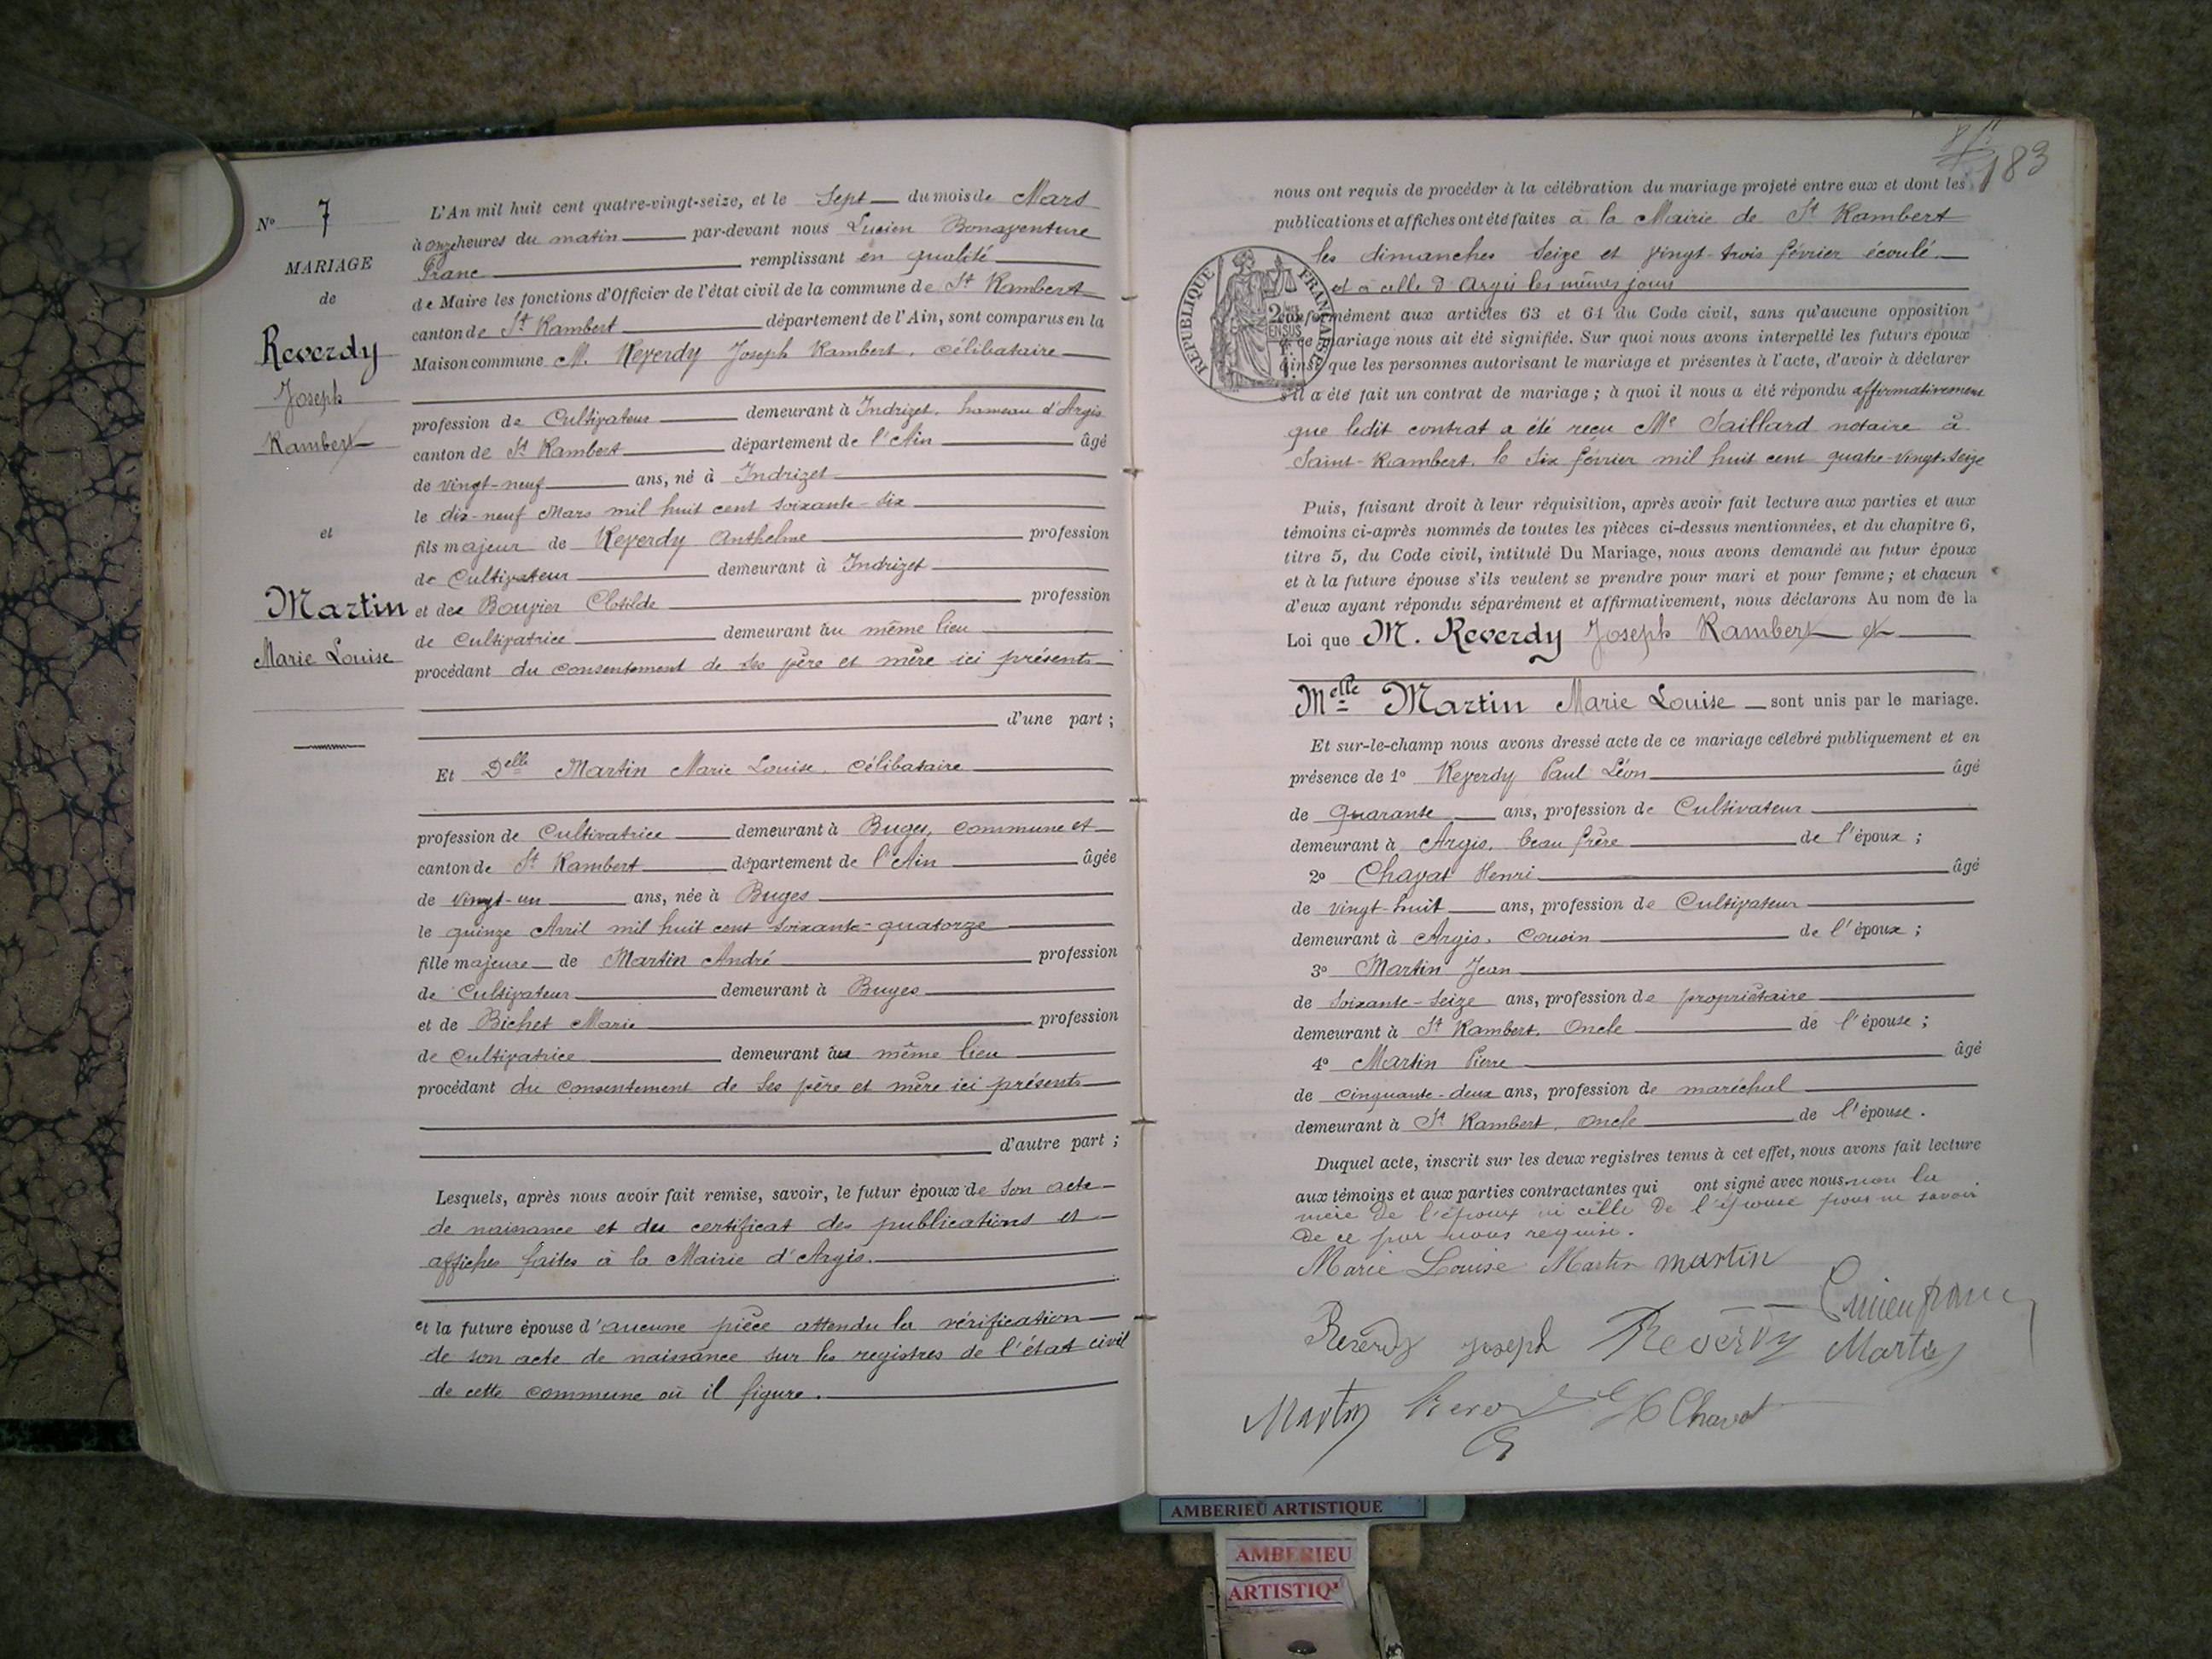 N° 7
MARIAGE
de
Reverdy
Joseph
Rambert
et
Martin
Marie Louise
L'An mil huit cent quatre-vingt-seize, et le Sept du mois de Mars
à onze heures du matin par-devant nous Lucien Bonaventure
Franc remplissant en qualité
de Maire les fonctions d'Officier de l'état civil de la commune de St Rambert
canton de St Rambert département de l'Ain, sont comparus en la
Maison commune M. Reverdy Joseph Rambert, célibataire
profession de Cultivateur demeurant à Indrizet, hameau d'Argis
canton de St Rambert département de l'Ain âgé
de vingt-neuf ans, né à Indrizet
le dix-neuf Mars mil huit cent soixante-six
fils majeur de Reverdy Anthelme profession
de Cultivateur demeurant à Indrizet
et de Bouvier Clotilde profession
de Cultivatrice demeurant au même lieu
procédant du consentement de ses père et mère ici présents
d'une part ;
Et Delle Martin Marie Louise, célibataire
profession de Cultivatrice demeurant à Buges, commune et
canton de St Rambert département de l'Ain âgée
de vingt-un ans, née à Buges
le quinze Avril mil huit cent soixante-quatorze
fille majeure de Martin André profession
de Cultivateur demeurant à Buges
et de Bichet Marie profession
de Cultivatrice demeurant au même lieu
procédant du consentement de ses père et mère ici présents
d'autre part ;
Lesquels, après nous avoir fait remise, savoir, le futur époux de son acte
de naissance et du certificat des publications et
affiches faites à la Mairie d'Argis.
et la future épouse d'aucune pièce attendu la vérification
de son acte de naissance sur les registres de l'état civil
de cette commune où il figure.
183
nous ont requis de procéder à la célébration du mariage projeté entre eux et dont les
publications et affiches ont été faites à la Mairie de St Rambert
les dimanches Seize et vingt-trois février écoulé
et à celle d'Argis les mêmes jours
REPUBLIQUE FRANÇAISE
2 EN SUS
conformément aux articles 63 et 64 du Code civil, sans qu'aucune opposition
à ce mariage nous ait été signifiée. Sur quoi nous avons interpellé les futurs époux
ainsi que les personnes autorisant le mariage et présentes à l'acte, d'avoir à déclarer
s'il a été fait un contrat de mariage ; à quoi il nous a été répondu affirmativement
que ledit contrat a été reçu Me Saillard notaire à
Saint-Rambert, le six février mil huit cent quatre-vingt-seize
Puis, faisant droit à leur réquisition, après avoir fait lecture aux parties et aux
témoins ci-après nommés de toutes les pièces ci-dessus mentionnées, et du chapitre 6,
titre 5, du Code civil, intitulé Du Mariage, nous avons demandé au futur époux
et à la future épouse s'ils veulent se prendre pour mari et pour femme ; et chacun
d'eux ayant répondu séparément et affirmativement, nous déclarons Au nom de la
Loi que M. Reverdy Joseph Rambert et
Melle Martin Marie Louise sont unis par le mariage.
Et sur-le-champ nous avons dressé acte de ce mariage célébré publiquement et en
présence de 1° Reverdy Paul Léon âgé
de Quarante ans, profession de Cultivateur
demeurant à Argis, beau frère de l'époux ;
2° Chavat Henri âgé
de vingt-huit ans, profession de Cultivateur
demeurant à Argis, cousin de l'époux ;
3° Martin Jean
de soixante-seize ans, profession de propriétaire
demeurant à St Rambert, Oncle de l'épouse ;
4° Martin Pierre âgé
de cinquante-deux ans, profession de maréchal
demeurant à St Rambert, oncle de l'épouse.
Duquel acte, inscrit sur les deux registres tenus à cet effet, nous avons fait lecture
aux témoins et aux parties contractantes qui ont signé avec nous non la
mère de l'époux ni celle de l'épouse pour ne savoir
de ce par nous requise.
Marie Louise Martin martin
Lucien franc
Reverdy joseph Reverdy Martin
Martin H Chavat
AMBERIEU ARTISTIQUE
AMBERIEU
ARTISTIQ